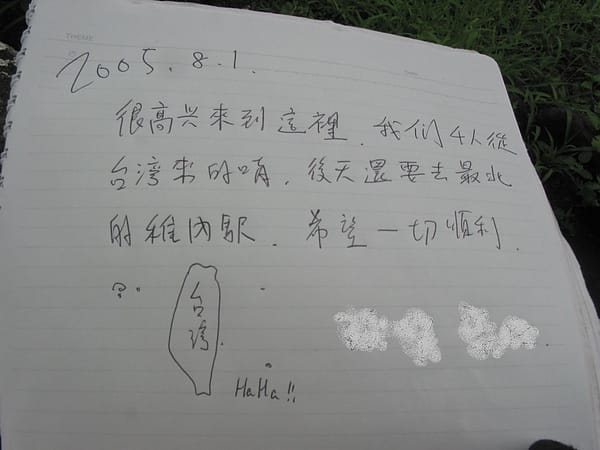 THEME
2005.8.1.
很高兴來到這裡.我们4人從
台湾來的唷.後天還要去最北
的稚内駅.希望一切順利.
台湾
HaHa!!